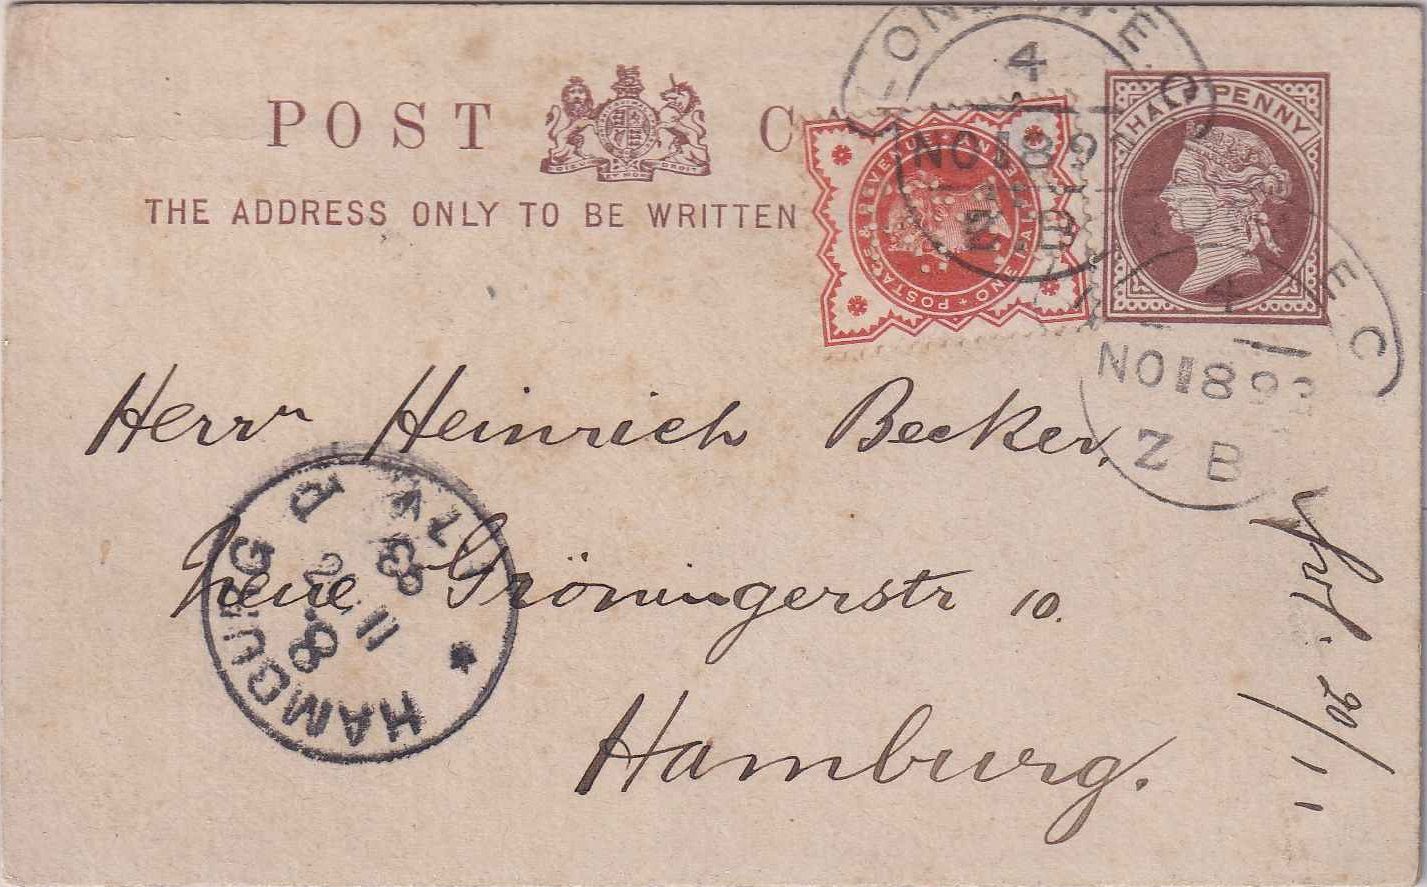 POST C
THE ADDRESS ONLY TO BE WRITTEN
HALFPENNY
POSTAGE & REVENUE
ONE HALFPENNY
LONDON·E·C
4
NO 18 9
E C
NO 18 93
Z B
Herrn Heinrich Becker.
Neue Gröningerstr 10.
Hamburg.
HAMBURG
20/11